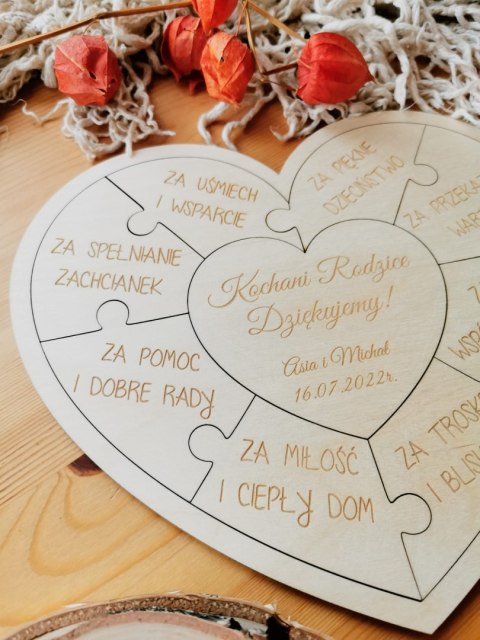 ZA UŚMIECH
I WSPARCIE
ZA PIĘKNE
DZIECIŃSTWO
ZA
ZA SPEŁNIANIE
ZACHCIANEK
Kochani Rodzice
Dziękujemy!
Asia i Michał
16.07.2022r.
ZA POMOC
I DOBRE RADY
ZA MIŁOŚĆ
I CIEPŁY DOM
ZA
I